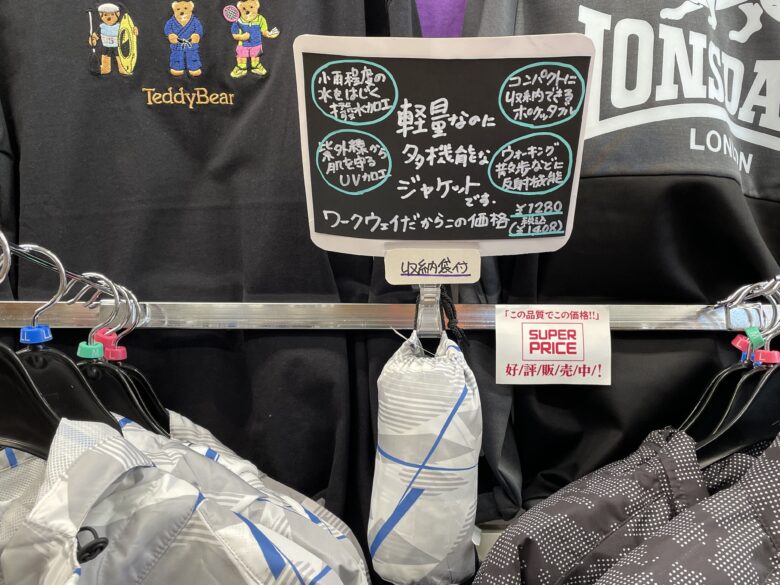 TeddyBear
LONSDA
LONDON
小雨程度の
水をはじく
撥水加工
紫外線から
肌を守る
UV加工
軽量なのに
多機能な
ジャケットです.
ワークウェイだからこの価格
コンパクトに
収納できる
ポケッタブル
ウォーキング
散歩などに
反射機能
¥1280
税込
(¥1408)
収納袋付
「この品質でこの価格!!」
SUPER
PRICE
好/評/販/売/中/!